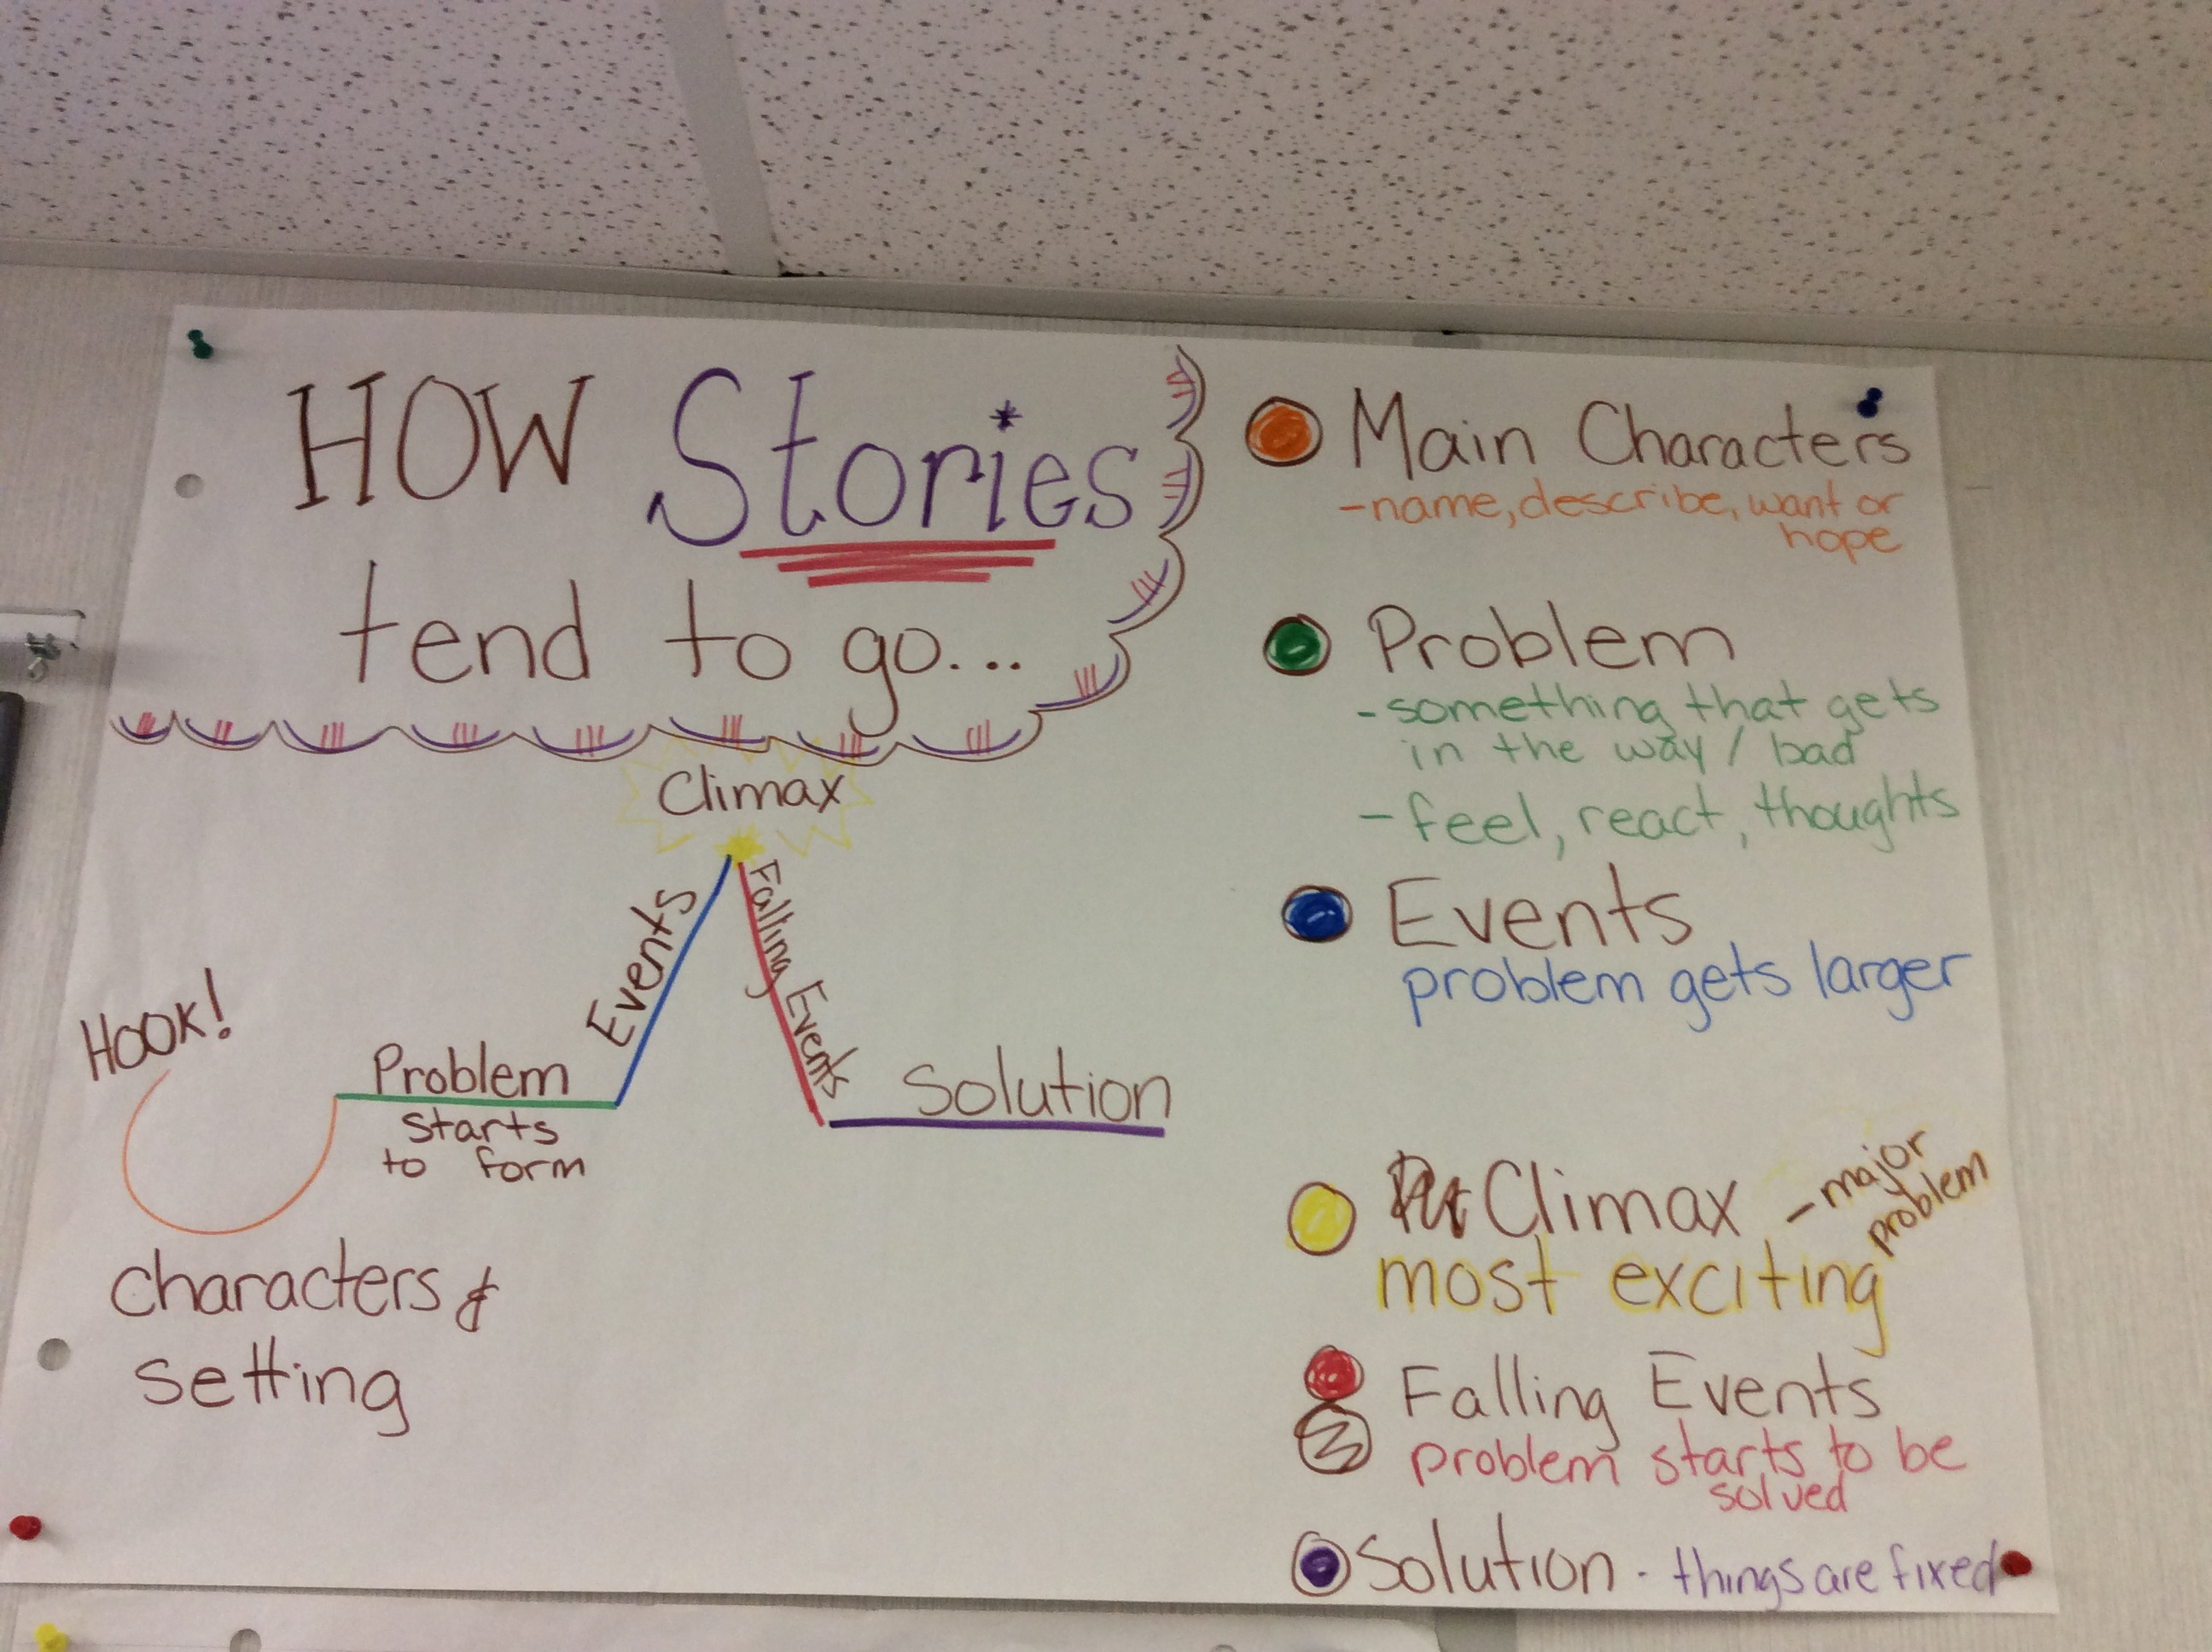 HOW Stories
tend to go...
Climax
Events
Falling Events
HOOK!
Problem
starts
to form
Solution
characters &
setting
Main Characters
-name, describe, want or
hope
Problem
-something that gets
in the way / bad
-feel, react, thoughts
Events
problem gets larger
Climax - major
problem
most exciting
Falling Events
problem starts to be
solved
Solution - things are fixed